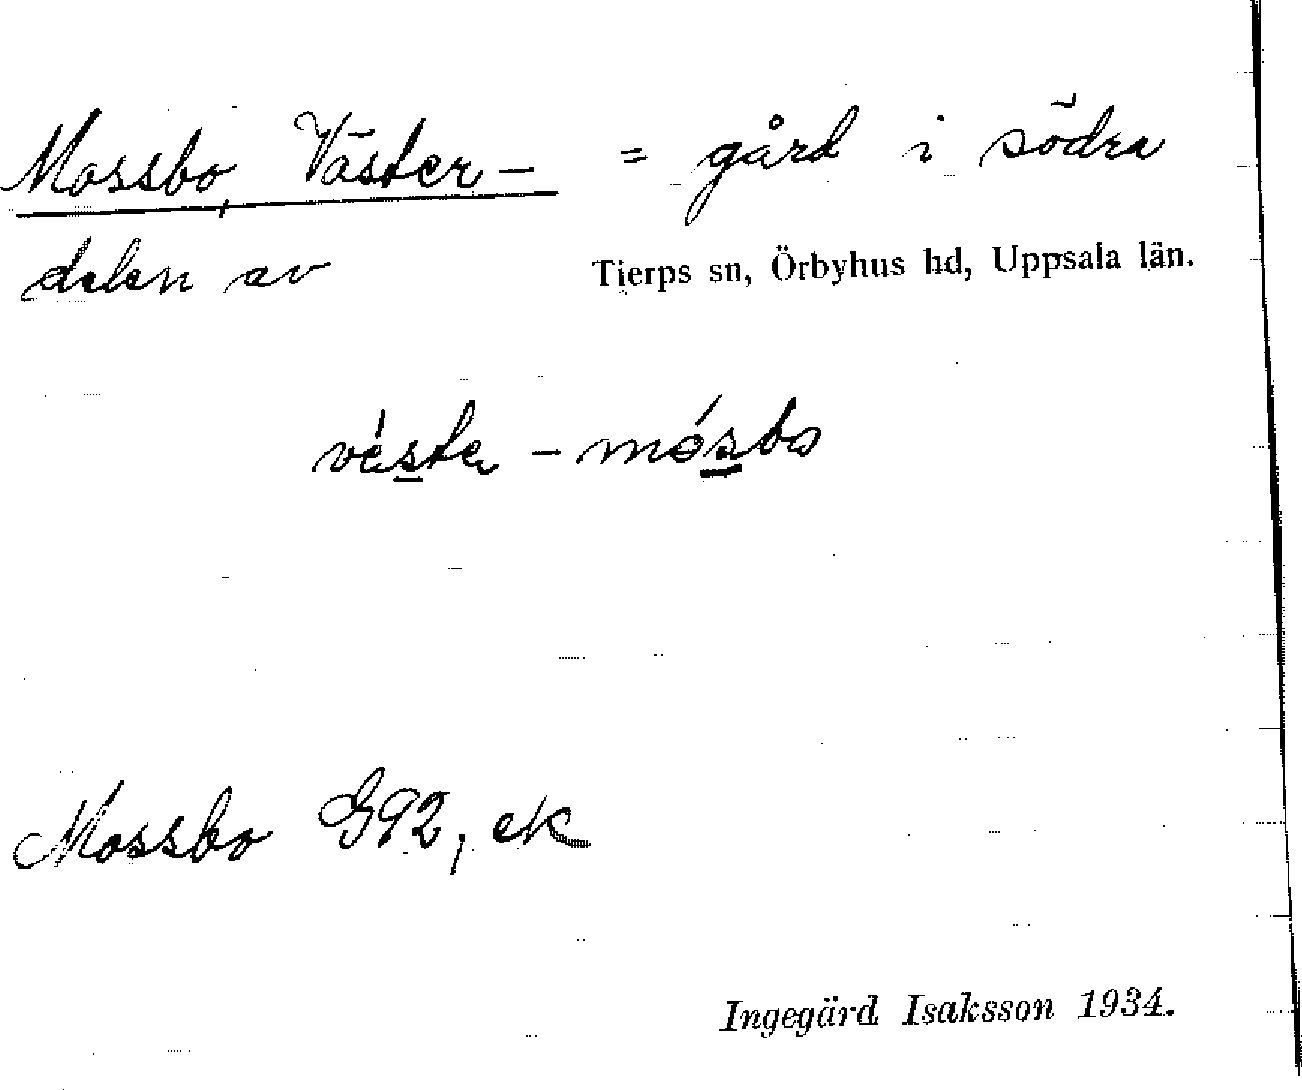 Mossbo, Väster- = gård i södra
delen av Tierps sn, Örbyhus hd, Uppsala län.
véster - mósbo
Mossbo G92, ek
Ingegärd Isaksson 1934.